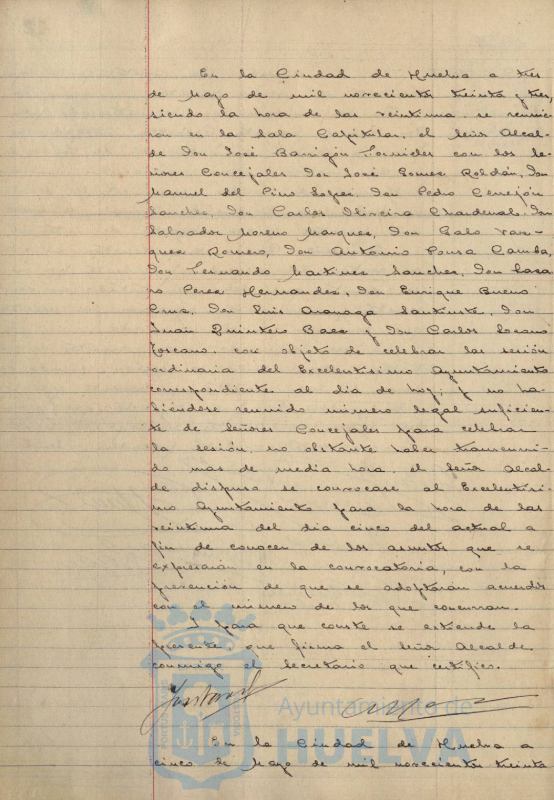 En la Ciudad de Huelva a tres
de Mayo de mil novecientos treinta y tres,
siendo la hora de las veintiuna, se reunie-
ron en la Sala Capitular, el Señor Alcal-
de Don José Barrigón Fornieles con los Se-
ñores Concejales Don José Gomez Roldán, Don
Manuel del Pino Lopez, Don Pedro Cerrejón
Sanchez, Don Carlos Oliveira Chardenal, Don
Salvador Moreno Marquez, Don Galo Vaz-
quez Romero, Don Antonio Pousa Camba,
Don Fernando Martinez Sanchez, Don Casa
ro Perez Hernandez, Don Enrique Bueno
Cruz, Don Luis Don
Juan Quintero Baez y Don Carlos
Toscano, con objeto de celebrar la sesión
ordinaria del Excelentisimo Ayuntamiento
correspondiente al dia de hoy; y no ha-
biéndose reunido número legal suficien-
te de Señores Concejales para celebrar
la sesión, no obstante haber transcurri-
do mas de media hora, el Señor Alcal-
de dispuso se convocase al Excelentisi-
mo Ayuntamiento para la hora de las
veintiuna del dia cinco del actual a
fin de conocer de los asuntos que se
expresarán en la convocatoria, con la
prevención de que se adoptarán acuerdos
con el número de los que concurran.
Y para que conste se extiende la
presente que firma el Señor Alcalde
conmigo el Secretario que certifico.
Ayuntamiento de
HUELVA
En la Ciudad de Huelva a
cinco de Mayo de mil novecientos treinta